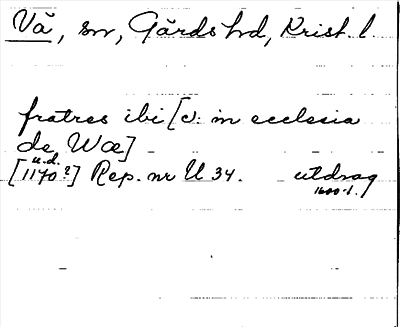 Vä, sn, Gärds hd, Krist. l.
fratres ibi [ɔ: in ecclesia
de Wæ]
u.d.
[1170?] Rep. nr U 34. utdrag
1600-t.